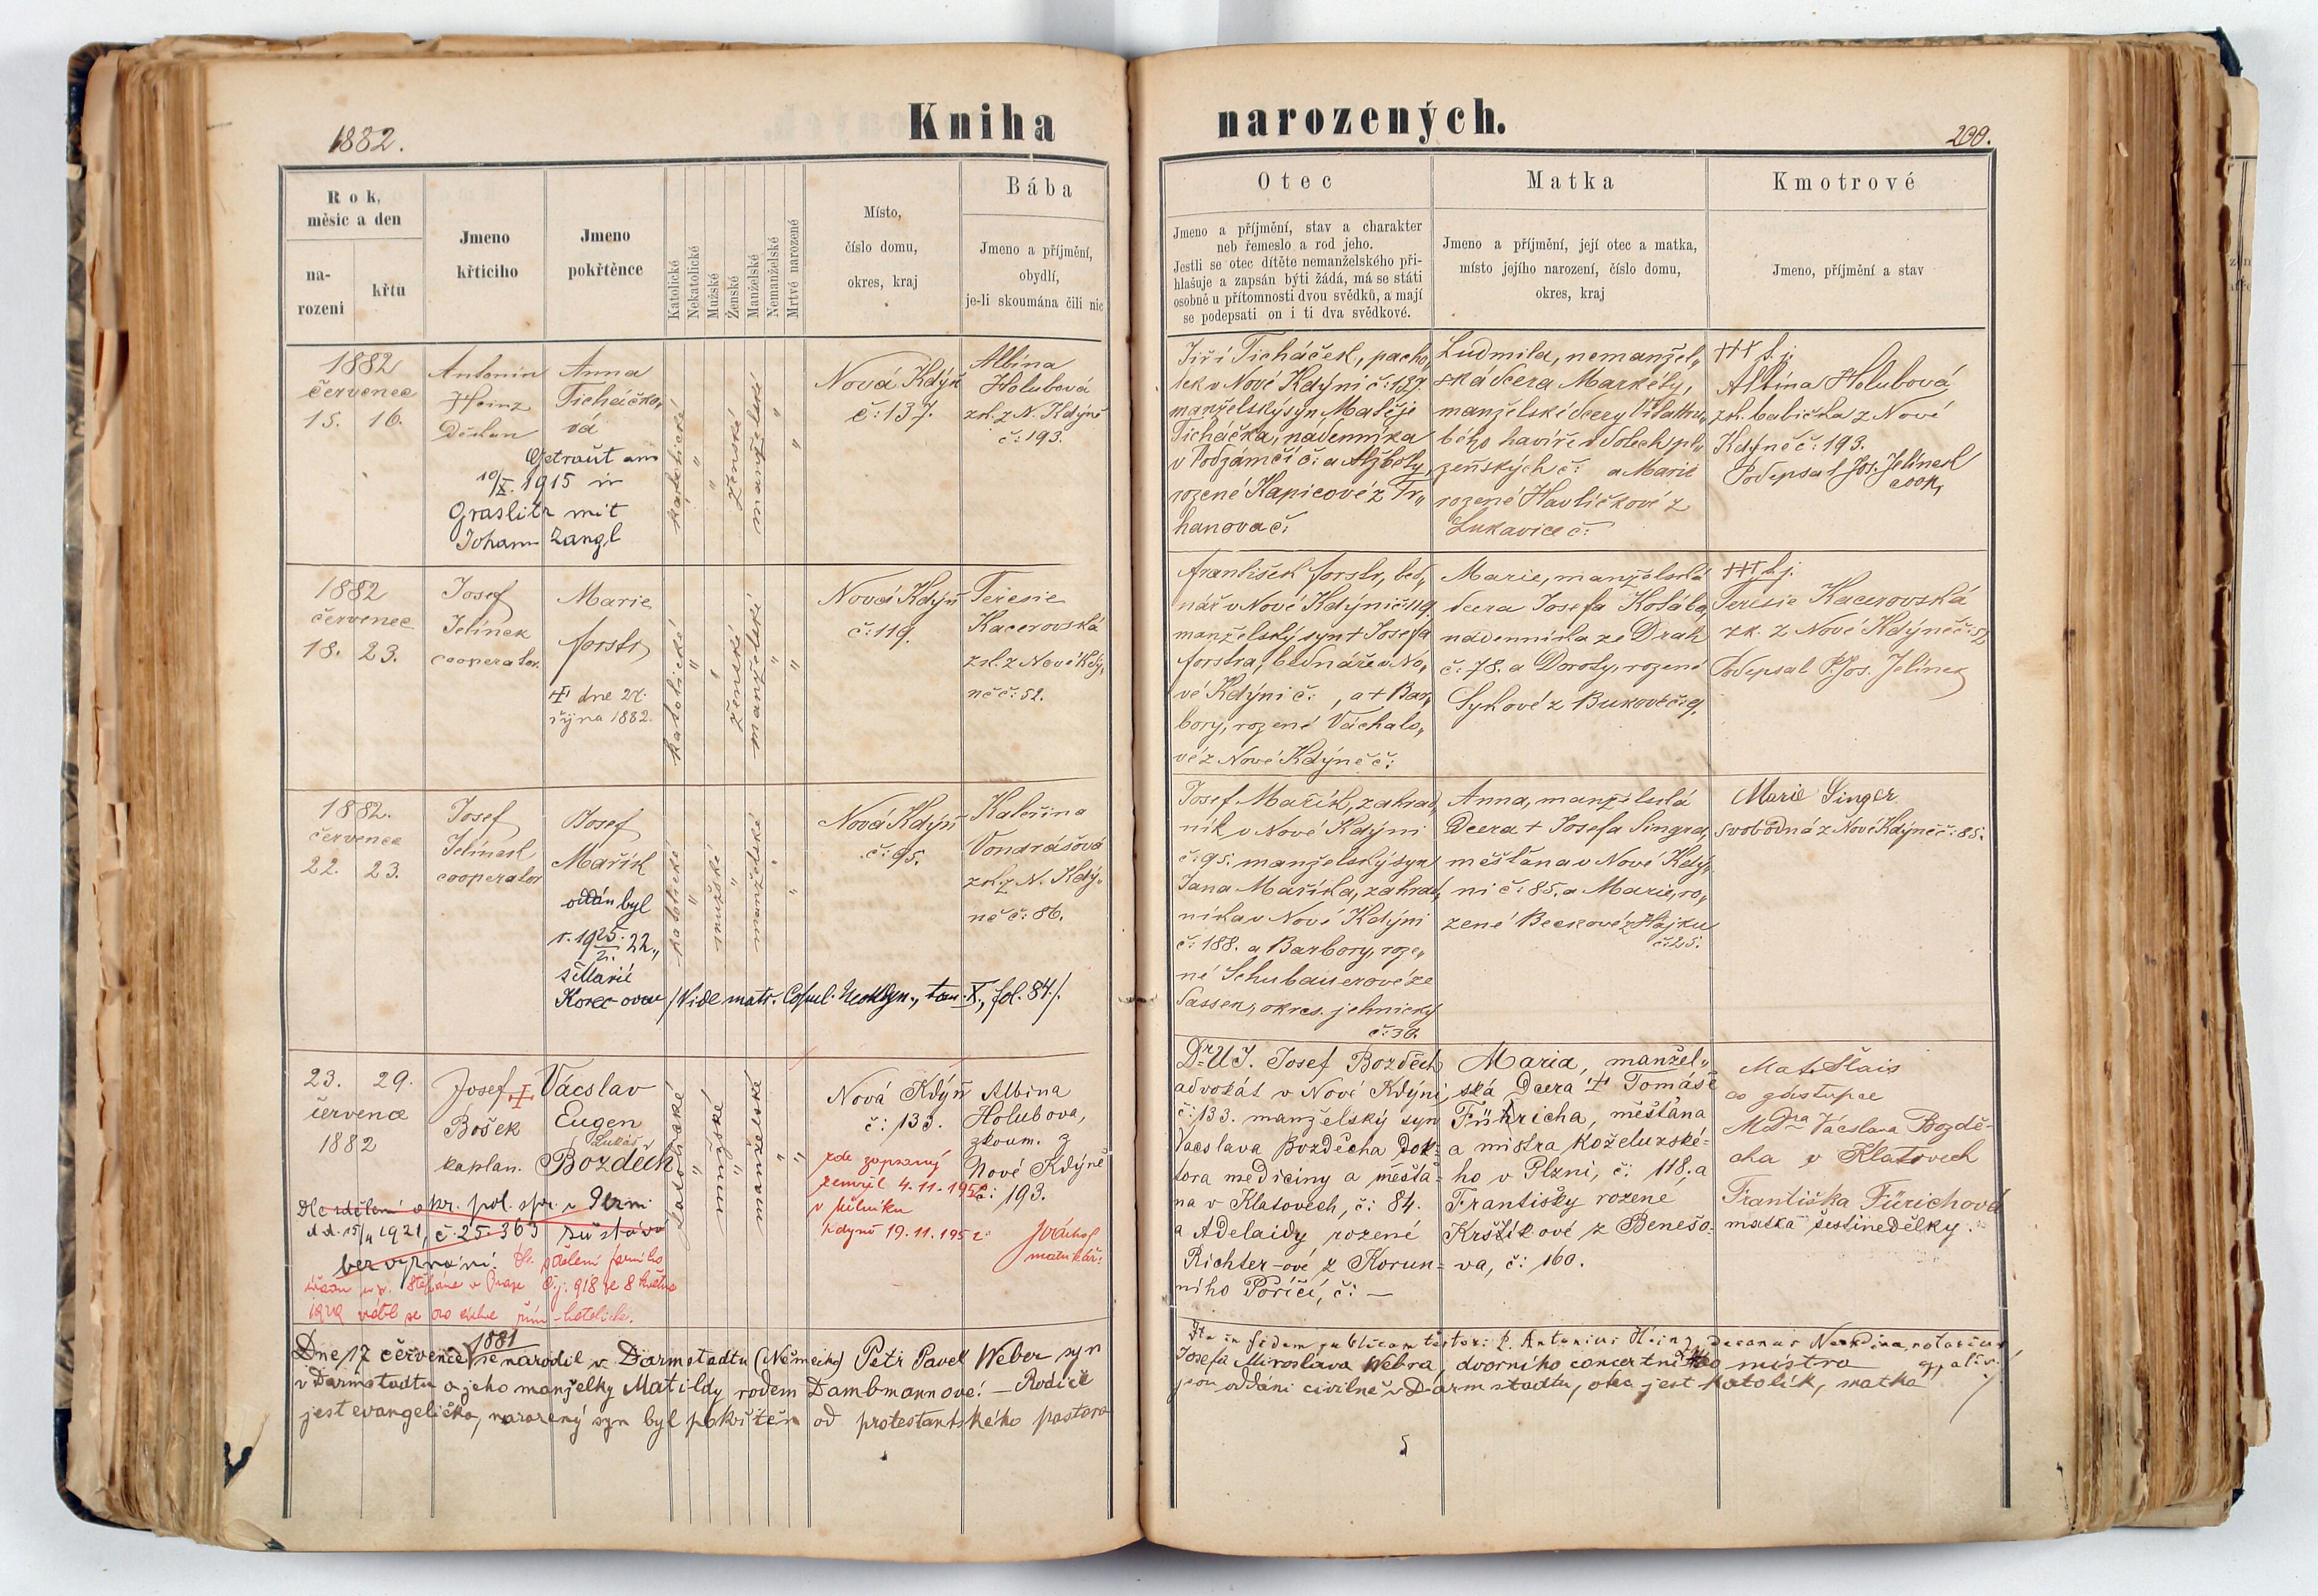 1882.
Kniha
narozených.
200.
Rok,
měsíc a den
na-
rozeni
křtu
Jmeno
křticiho
Jmeno
pokřtěnce
Katolické
Nekatolické
Mužské
Ženské
Manželské
Nemanželské
Mrtvé narozené
Místo,
číslo domu,
okres, kraj
Bába
Jmeno a příjmění,
obydlí,
je-li skoumána čili nic
Otec
Jmeno a příjmění, stav a charakter
neb řemeslo a rod jeho.
Jestli se otec dítěte nemanželského při-
hlašuje a zapsán býti žádá, má se státi
osobně u přítomnosti dvou svědků, a mají
se podepsati on i ti dva svědkové.
Matka
Jmeno a příjmění, její otec a matka,
místo jejího narození, číslo domu,
okres, kraj
Kmotrové
Jmeno, příjmění a stav
1882
červenec
15. 16.
Antonín
Heinz
Děkan
Anna
Ticháčko„
vá
Getraut am
10/X. 1915 in
Graslitz mit
Johann Zangl
katolické
ženské
manželské
Nová Kdýň
č: 137.
Albína
Holubová
zk. z N. Kdýně
č: 193.
Jiří Ticháček, pacho„
lek v Nové Kdýni č: 137.
manželský syn Matěje
Ticháčka, nádenníka
v Podzámčí č: a Alžběty
rozené Kapicové z Tr„
hanova č:
Ludmila, nemanžel„
ská dcera Markéty,
manželské dcery
havíře
a Marie
rozené Havlíčkové z
Lukavice č:
+++ t. j.
Albína Holubová
zk. babička z Nové
Kdýně č: 193.
Podepsal Jos. Jelínek
coop.
1882
červenec
18. 23.
Josef
Jelínek
cooperator
Marie
Forstr
+ dne 27.
října 1882.
katolické
ženské
manželské
Nová Kdýň
č: 119.
Terezie
Kacerovská
zk. z Nové Kdý„
ně č: 52.
František Forstr, bed„
nář v Nové Kdýni č: 119,
manželský syn + Josefa
Forstra, bednáře v No„
vé Kdýni č: , a + Bar„
bory, rozené Váchalo„
vé z Nové Kdýně č:
Marie, manželská
dcera Josefa Kolába,
nádenníka ze Drah
č: 78. a Doroty, rozené
Sykové z Bukové č: 9.
+++ t. j.
Terezie Kacerovská
zk. z Nové Kdýně č: 52
Podepsal P. Jos. Jelínek
1882.
července
22. 23.
Josef
Jelínek
cooperator
Josef
Mařík
oddán byl
r. 1925. 22„
s Marií
Korecovou /Vide matr. Copul. Neokdyn., tom. X., fol. 84/.
katolické
mužské
manželské
Nová Kdýň
č: 95.
Kateřina
Vondrášová
zk. z N. Kdý„
ně č: 86.
Josef Mařík, zahrad„
ník v Nové Kdýni
č: 95. manželský syn
Jana Maříka, zahrad„
níka v Nové Kdýni
č: 188. a Barbory, roze„
né Schubauerové ze
Sassen, okres.
č: 30.
Anna, manželská
Dcera + Josefa Singra,
měšťana v Nové Kdý„
ni č: 85. a Marie, ro„
zené Beckové z Hájku
č: 25.
Marie Singer
svobodná z Nové Kdýně č: 85.
23. 29.
července
1882
Josef
Bošek
kaplan.
+ Vácslav
Eugen
Lukáš
Bozděch
katolické
mužské
manželské
Nová Kdýň
č: 133.
Albina
Holubova,
zkoum. z
Nové Kdýně
č: 193.
zde zapsaný
zemřel 4. 11. 1952
v Mělníku
Kdyně 19. 11. 1952
matrikář:
Dle sdělení okr. pol. spr. v Plzni
d.d. 15/4 1921, č. 25.363 zůstává
bez vyznání.
Dle sdělení farního
úřadu u sv. Štěpána v Praze č.j. 918 ze 8 května
Dr UJ. Josef Bozděch
advokát v Nové Kdýni,
č: 133. manželský syn
Vácslava Bozděcha Dok-
tora mediciny a měšťa-
na v Klatovech, č: 84.
a Adelaidy rozené
Richter-ové z Korun-
ního Poříčí, č: —
Maria, manžel„
ská Dcera + Tomáše
Führicha, měšťana
a mistra koželužské-
ho v Plzni, č: 118, a
Františky rozené
Krštíkové z Benešo-
va, č: 160.
Mat. Šlais
co zástupce
MDra Vácslava Bozdě-
cha v Klatovech
Františka Fürichová
matka šestinedělky.
Dne 17 července 1881 se narodil v Darmstadtu (Německo) Petr Pavel Weber syn
Josefa Miroslava Webra, dvorního concertního mistra
v Darmstadtu a jeho manželky Matildy rodem Dambmannové! — Rodiče
jsou oddáni civilně v Darmstadtu, otec jest katolík, matka
jest evangelička, narozený syn byl pokřtěn od protestantského pastora
Ita in fidem publicam testor: P. Antonius Heinz, decanus